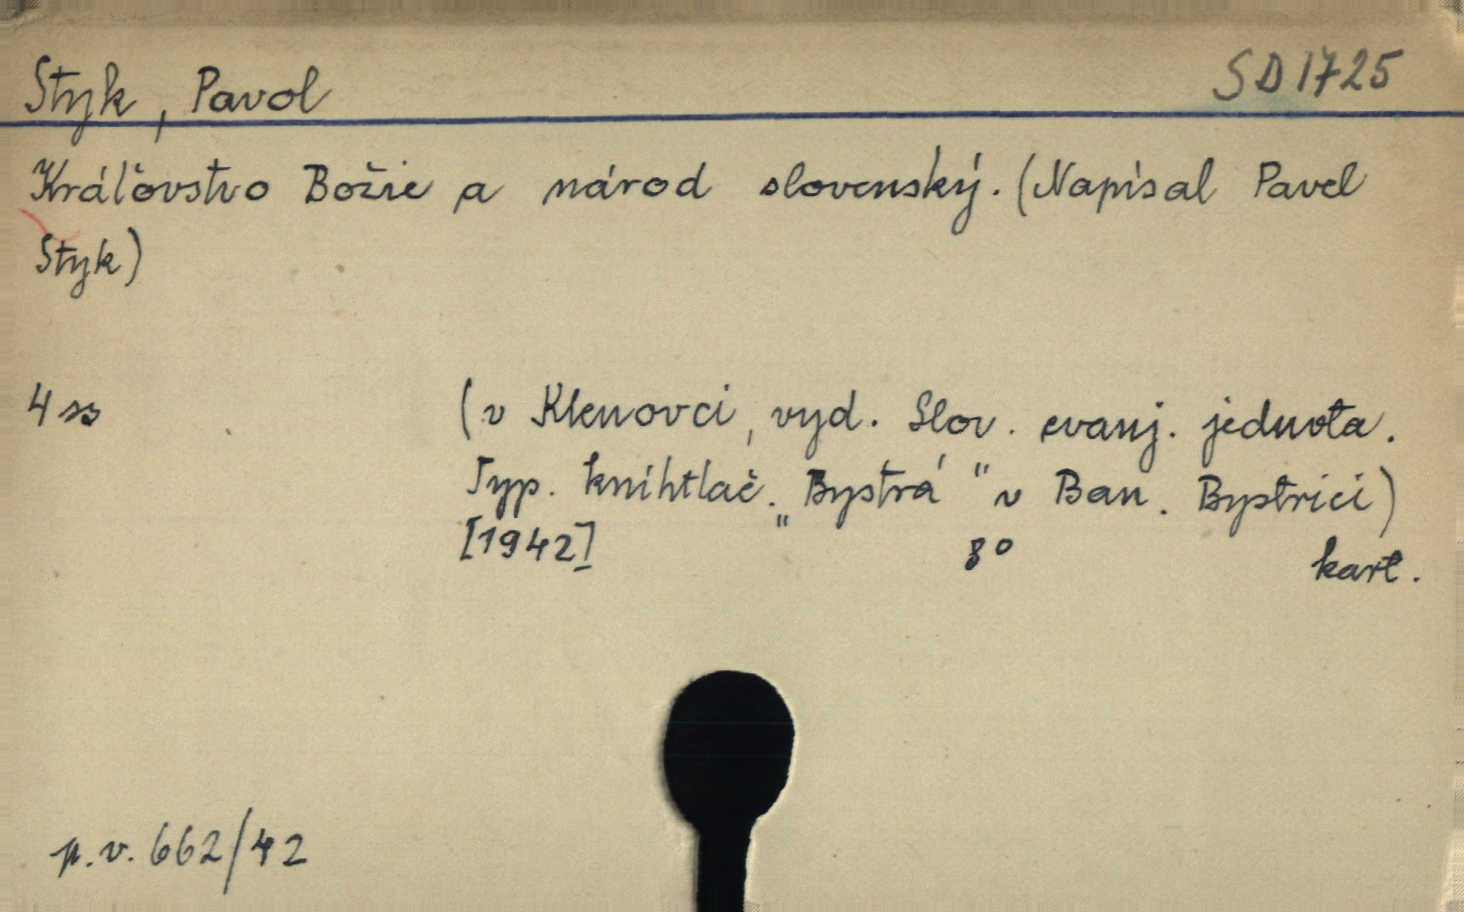 Styk, Pavol SD 1725
Kráľovstvo Božie a národ slovenský. (Napísal Pavel
Styk)
4 ss (v Klenovci, vyd. Slov. evanj. jednota.
Typ. kníhtlač. „Bystrá" v Ban. Bystrici)
[1942] 8° kart.
p.v. 662/42